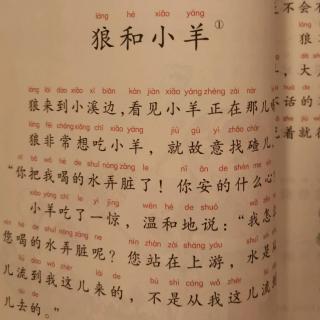 láng hé xiǎo yáng
狼和小羊①
láng lái dào xiǎo xī biān kàn jiàn xiǎo yáng zhèng zài nàr
狼来到小溪边，看见小羊正在那儿
láng fēi cháng xiǎng chī xiǎo yáng jiù gù yì zhǎo chár
狼非常想吃小羊，就故意找碴儿，
nǐ bǎ wǒ hē de shuǐ nòng zāng le nǐ ān de shén me xīn
“你把我喝的水弄脏了！你安的什么心
xiǎo yáng chī le yì jīng wēn hé de shuō
小羊吃了一惊，温和地说：“我怎
nín hē de shuǐ nòng zāng ne nín zhàn zài shàng yóu shuǐ
您喝的水弄脏呢？您站在上游，水是从
liú dào wǒ zhèr lái de bú shì cóng wǒ zhèr liú
儿流到我这儿来的，不是从我这儿流
qù de
儿去的。”
不会不
狼
大
话的
着就